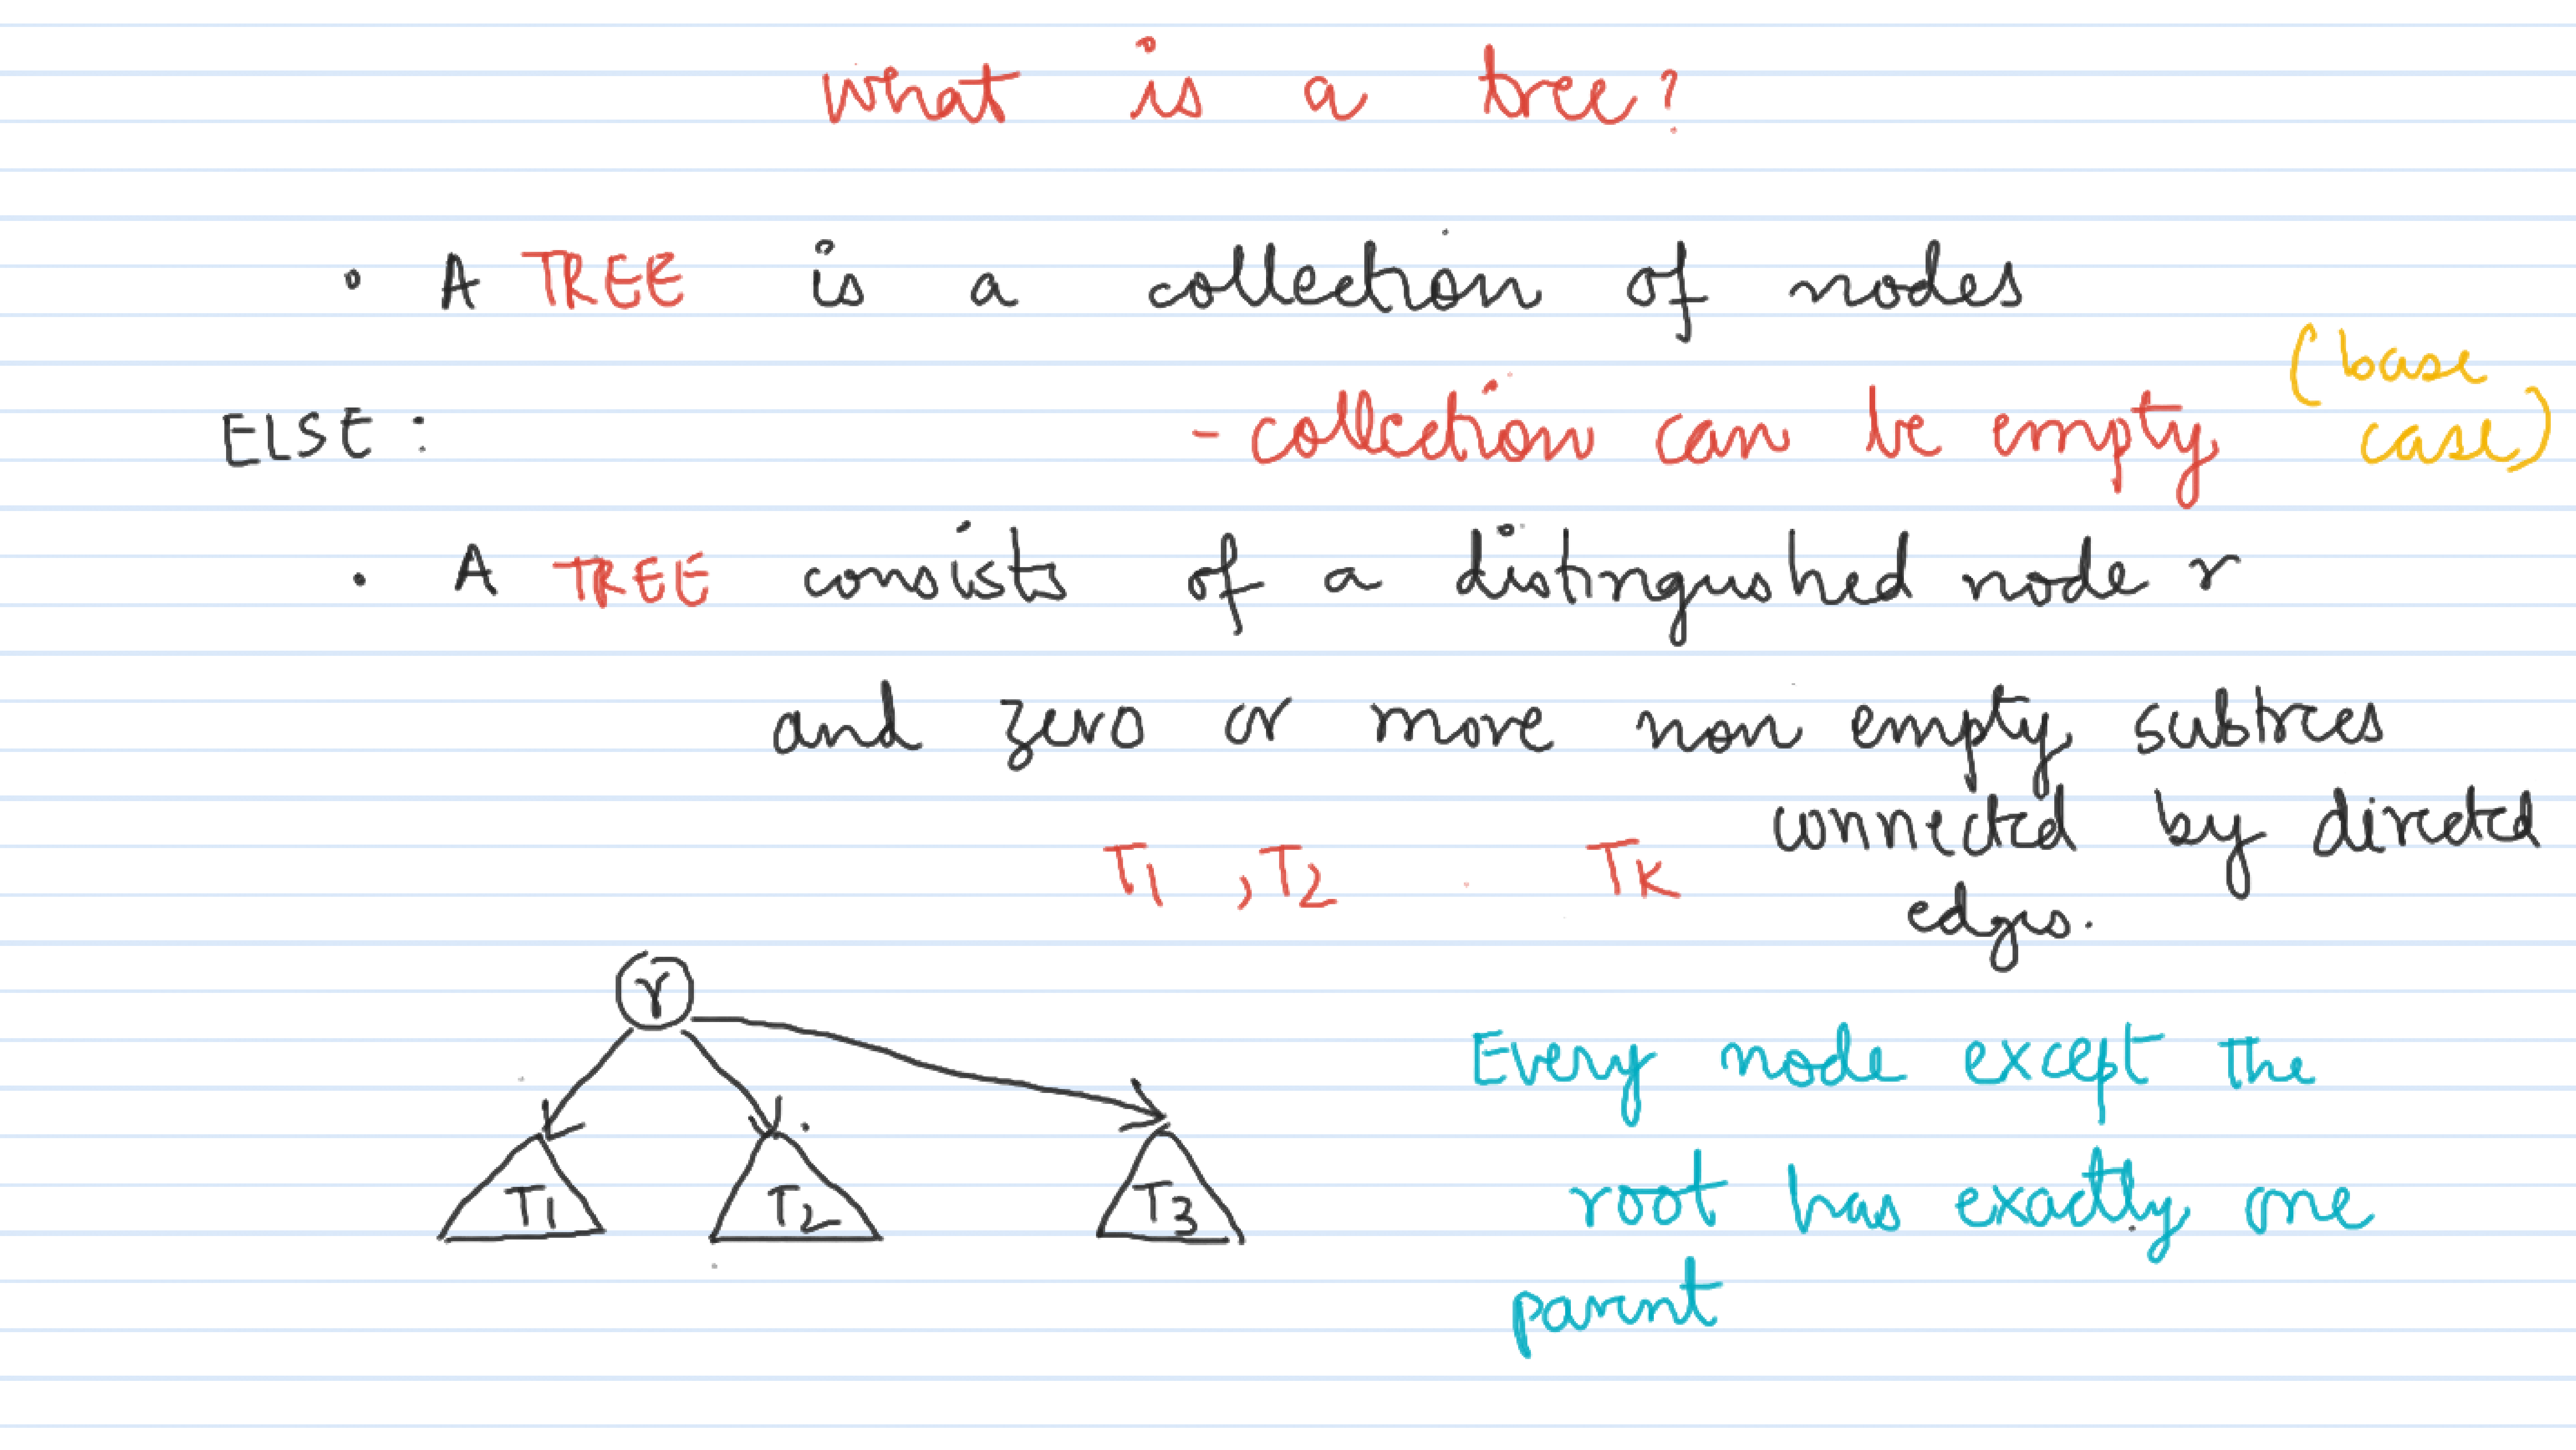 what is a tree?
• A TREE is a collection of nodes
(base
case)
ELSE: - collection can be empty
• A TREE consists of a distingushed node r
and zero or more non empty subtrees
connected by directed
edges.
T1, T2 . TK
r
T1 T2 T3
Every node except the
root has exactly one
parent